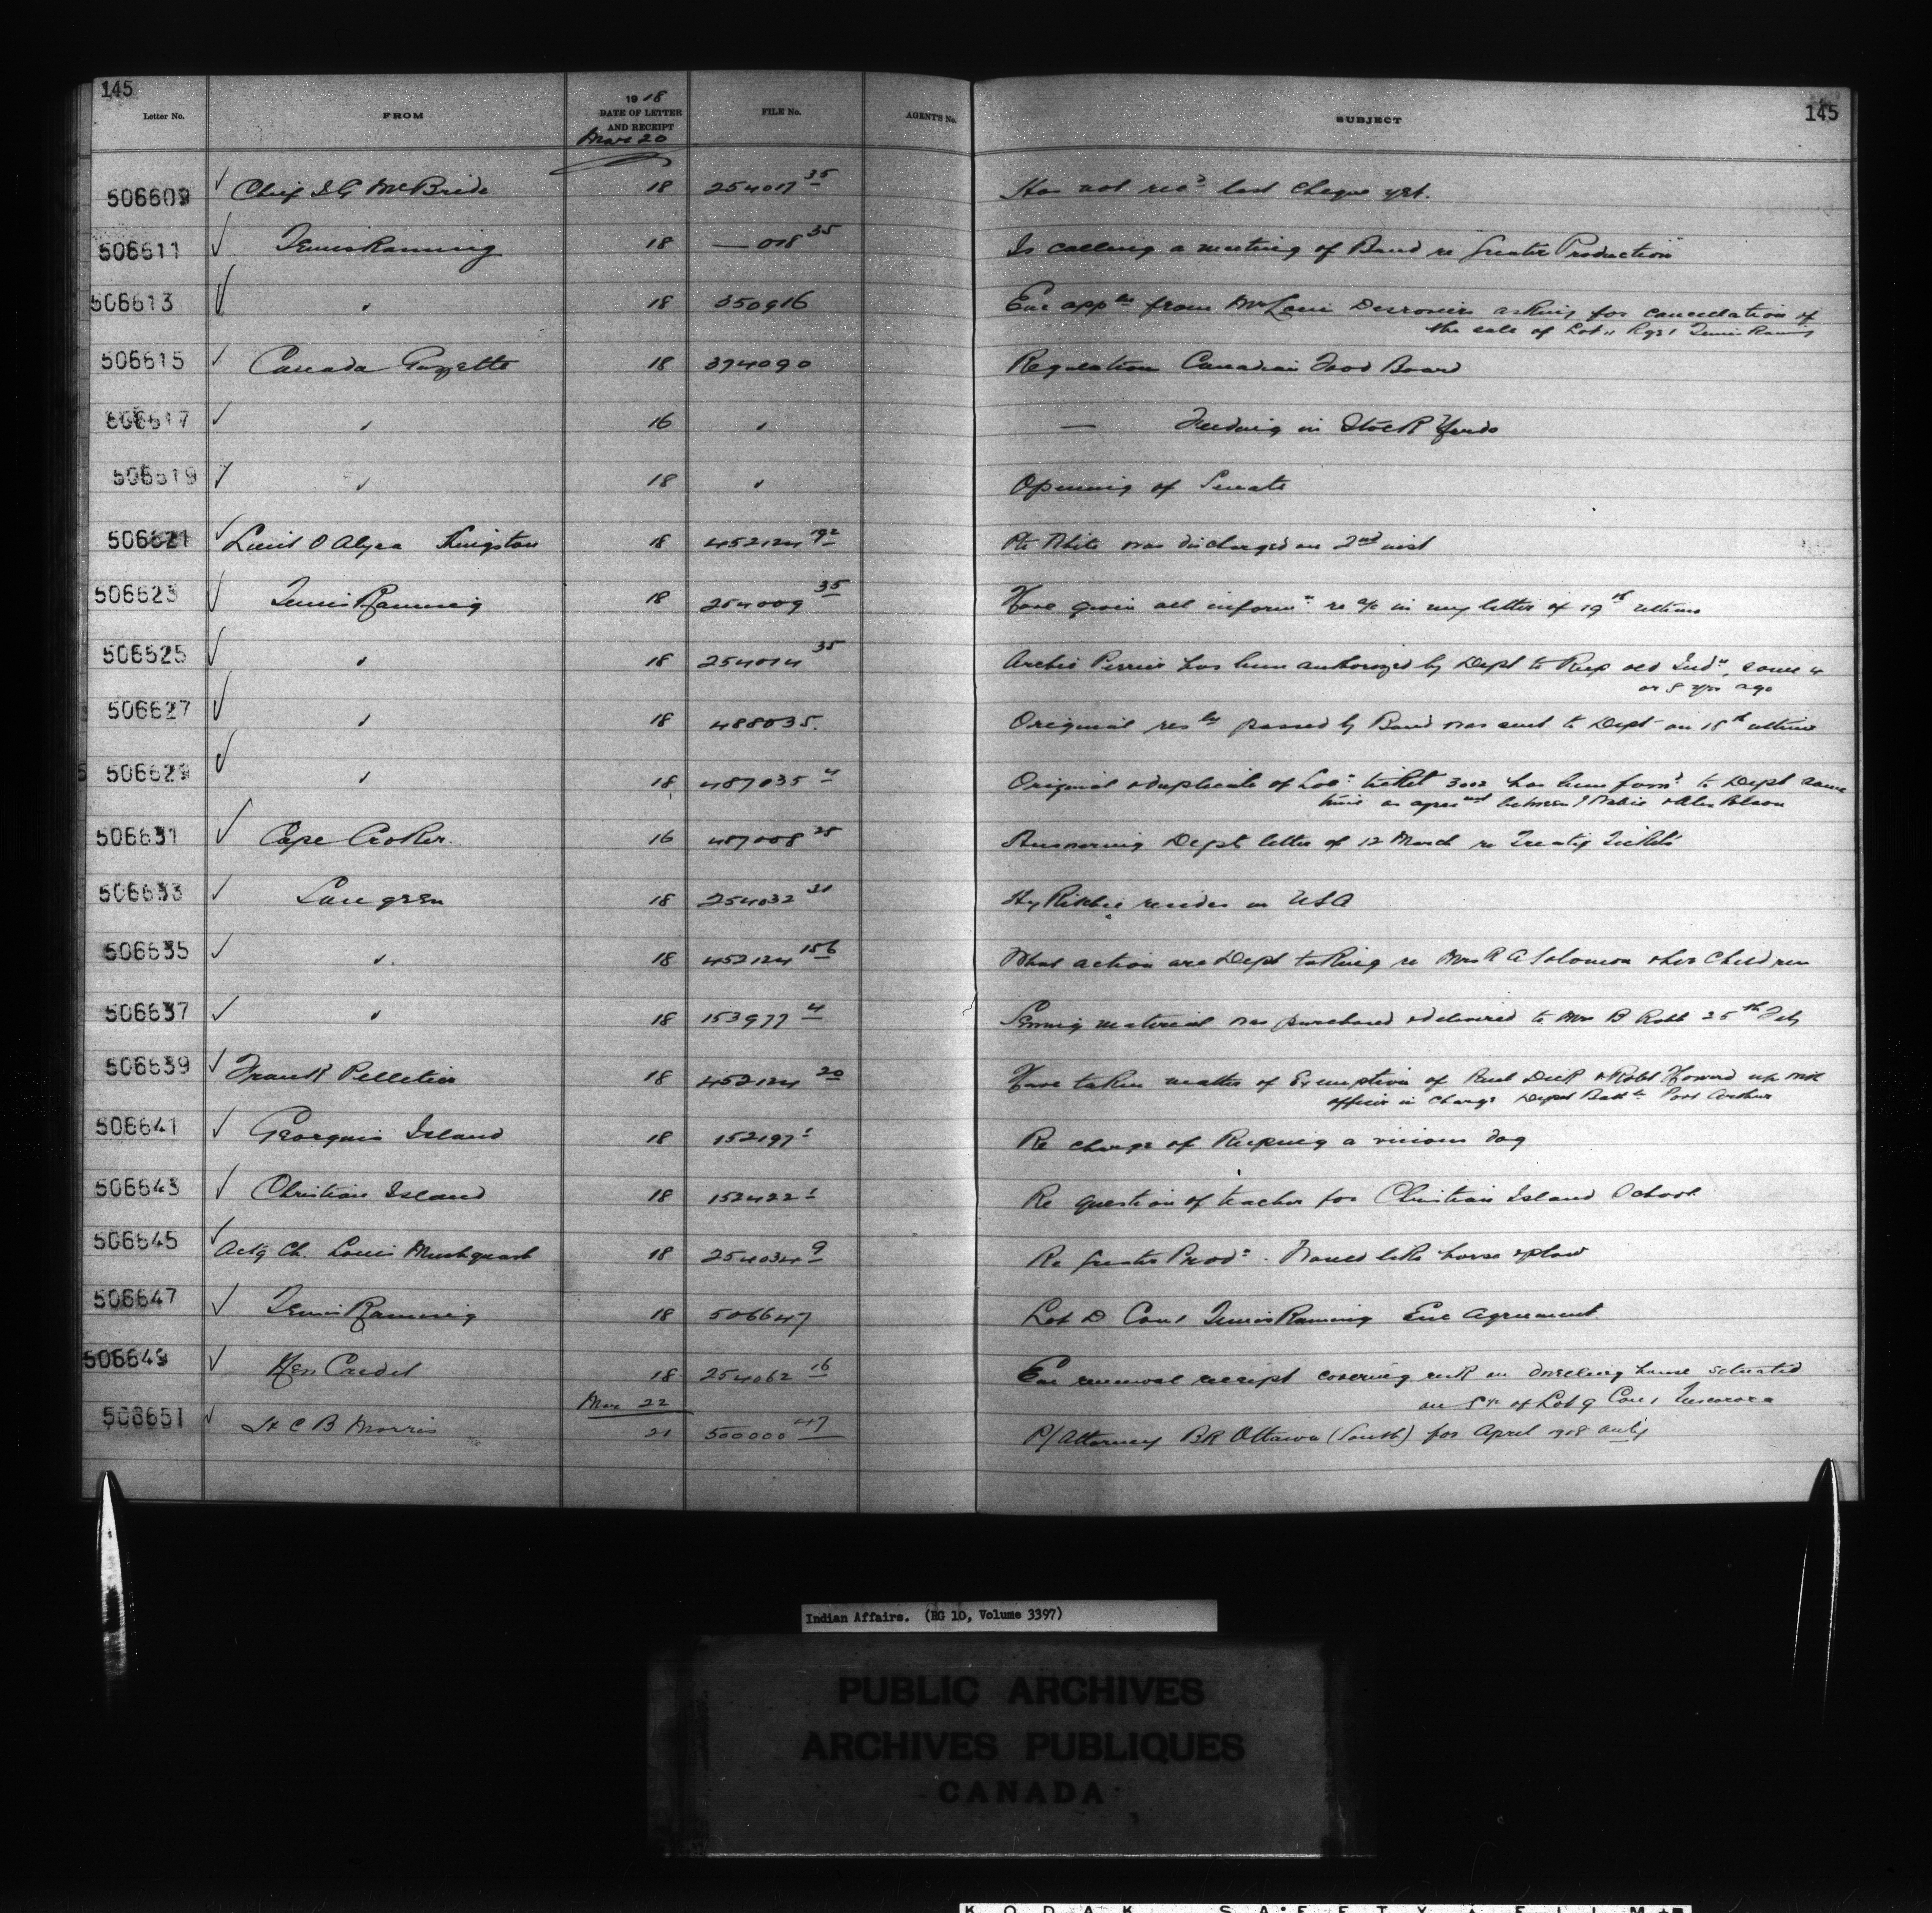 145
145
Letter No. FROM 1918 DATE OF LETTER AND RECEIPT FILE No. AGENT'S No. SUBJECT
Mar 20
506609 Chief I G McBride 18 254017 35 Has not rec'd last cheque yet.
506611 Temiskaming 18 — 018 35 Is calling a meeting of Band re "Greater Production"
506613 " 18 350916 Enc appln from Desrosiers asking for cancellation of
the sale of Lot 11 Rge 1 Temiskaming
506615 Canada Gazette 18 374090 Regulation Canadian Food Board
506617 " 16 " — Feeding in Stock Yards
506619 " 18 " Opening of Senate
506621 Lieut Kingston 18 452124 192 Pte White was discharged on 2nd inst
506623 Temiskaming 18 254009 35 Have given all inform'n re a/c in my letter of 19th ultimo
506625 " 18 254014 35 Archie Perrier has been authorized by Dept to keep old Indn some 4
or 5 yrs ago
506627 " 18 488035. Original resln passed by Band was sent to Dept on 15th ultimo
506629 " 18 487035 4 Original & duplicate of Loc'n ticket 3002 has been forw'd to Dept same
time as agreemt between
506631 Cape Croker. 16 487008 28 Answering Dept letter of 12 March re Treaty Tickets
506633 Saugeen 18 254032 31 Hy Ritchie resides in USA
506635 " 18 452124 156 What action are Dept taking re Mrs R A Solomon & her Children
506637 " 18 153977 4 Sewing material was purchased & delivered to Mrs B Robb 25th Feby
506639 Frank Pelletier 18 452124 20 Have taken matter of Exemption of Dick & Robt Howard up with
officer in charge Depot Battn Port Arthur
506641 Georgina Island 18 152197 1 Re charge of keeping a vicious dog
506643 Christian Island 18 152422 1 Re question of teacher for Christian Island School
506645 Actg Ch. Louis Mushquash 18 254034 9 Re Greater Prod'n. Would like horse & plow
506647 Temiskaming 18 506647 Lot D Con 1 Temiskaming Enc Agreement.
506649 18 254062 16 Enc renewal receipt covering risk on dwelling house situated
on S½ of Lot 9 Con 1 Tuscarora
Mar 22
506651 Lt C B Morris 21 500000 47 P/Attorney BK Ottawa (South) for April 1918 only
Indian Affairs. (RG 10, Volume 3397)
PUBLIC ARCHIVES
ARCHIVES PUBLIQUES
CANADA
KODAK SAFETY FILM